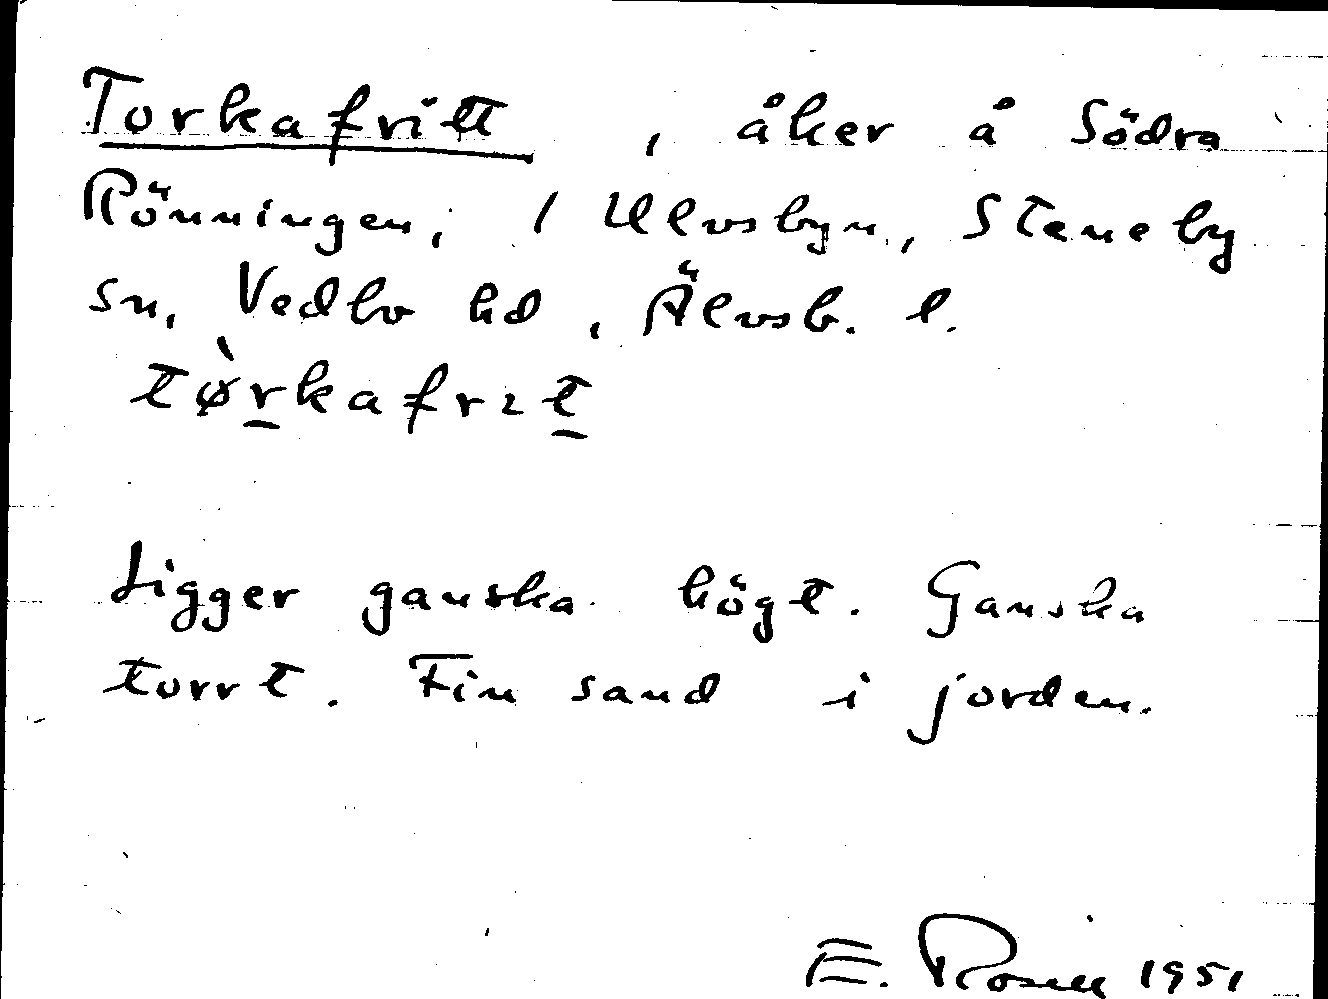 Torkafritt, åker å Södra
Rönningen, 1 Ulvsbyn, Steneby
sn, Vedbo hd, Älvsb. l.
tø̀rkafrıt
Ligger ganska högt. Ganska
torrt. Fin sand i jorden.
E. Rosell 1951